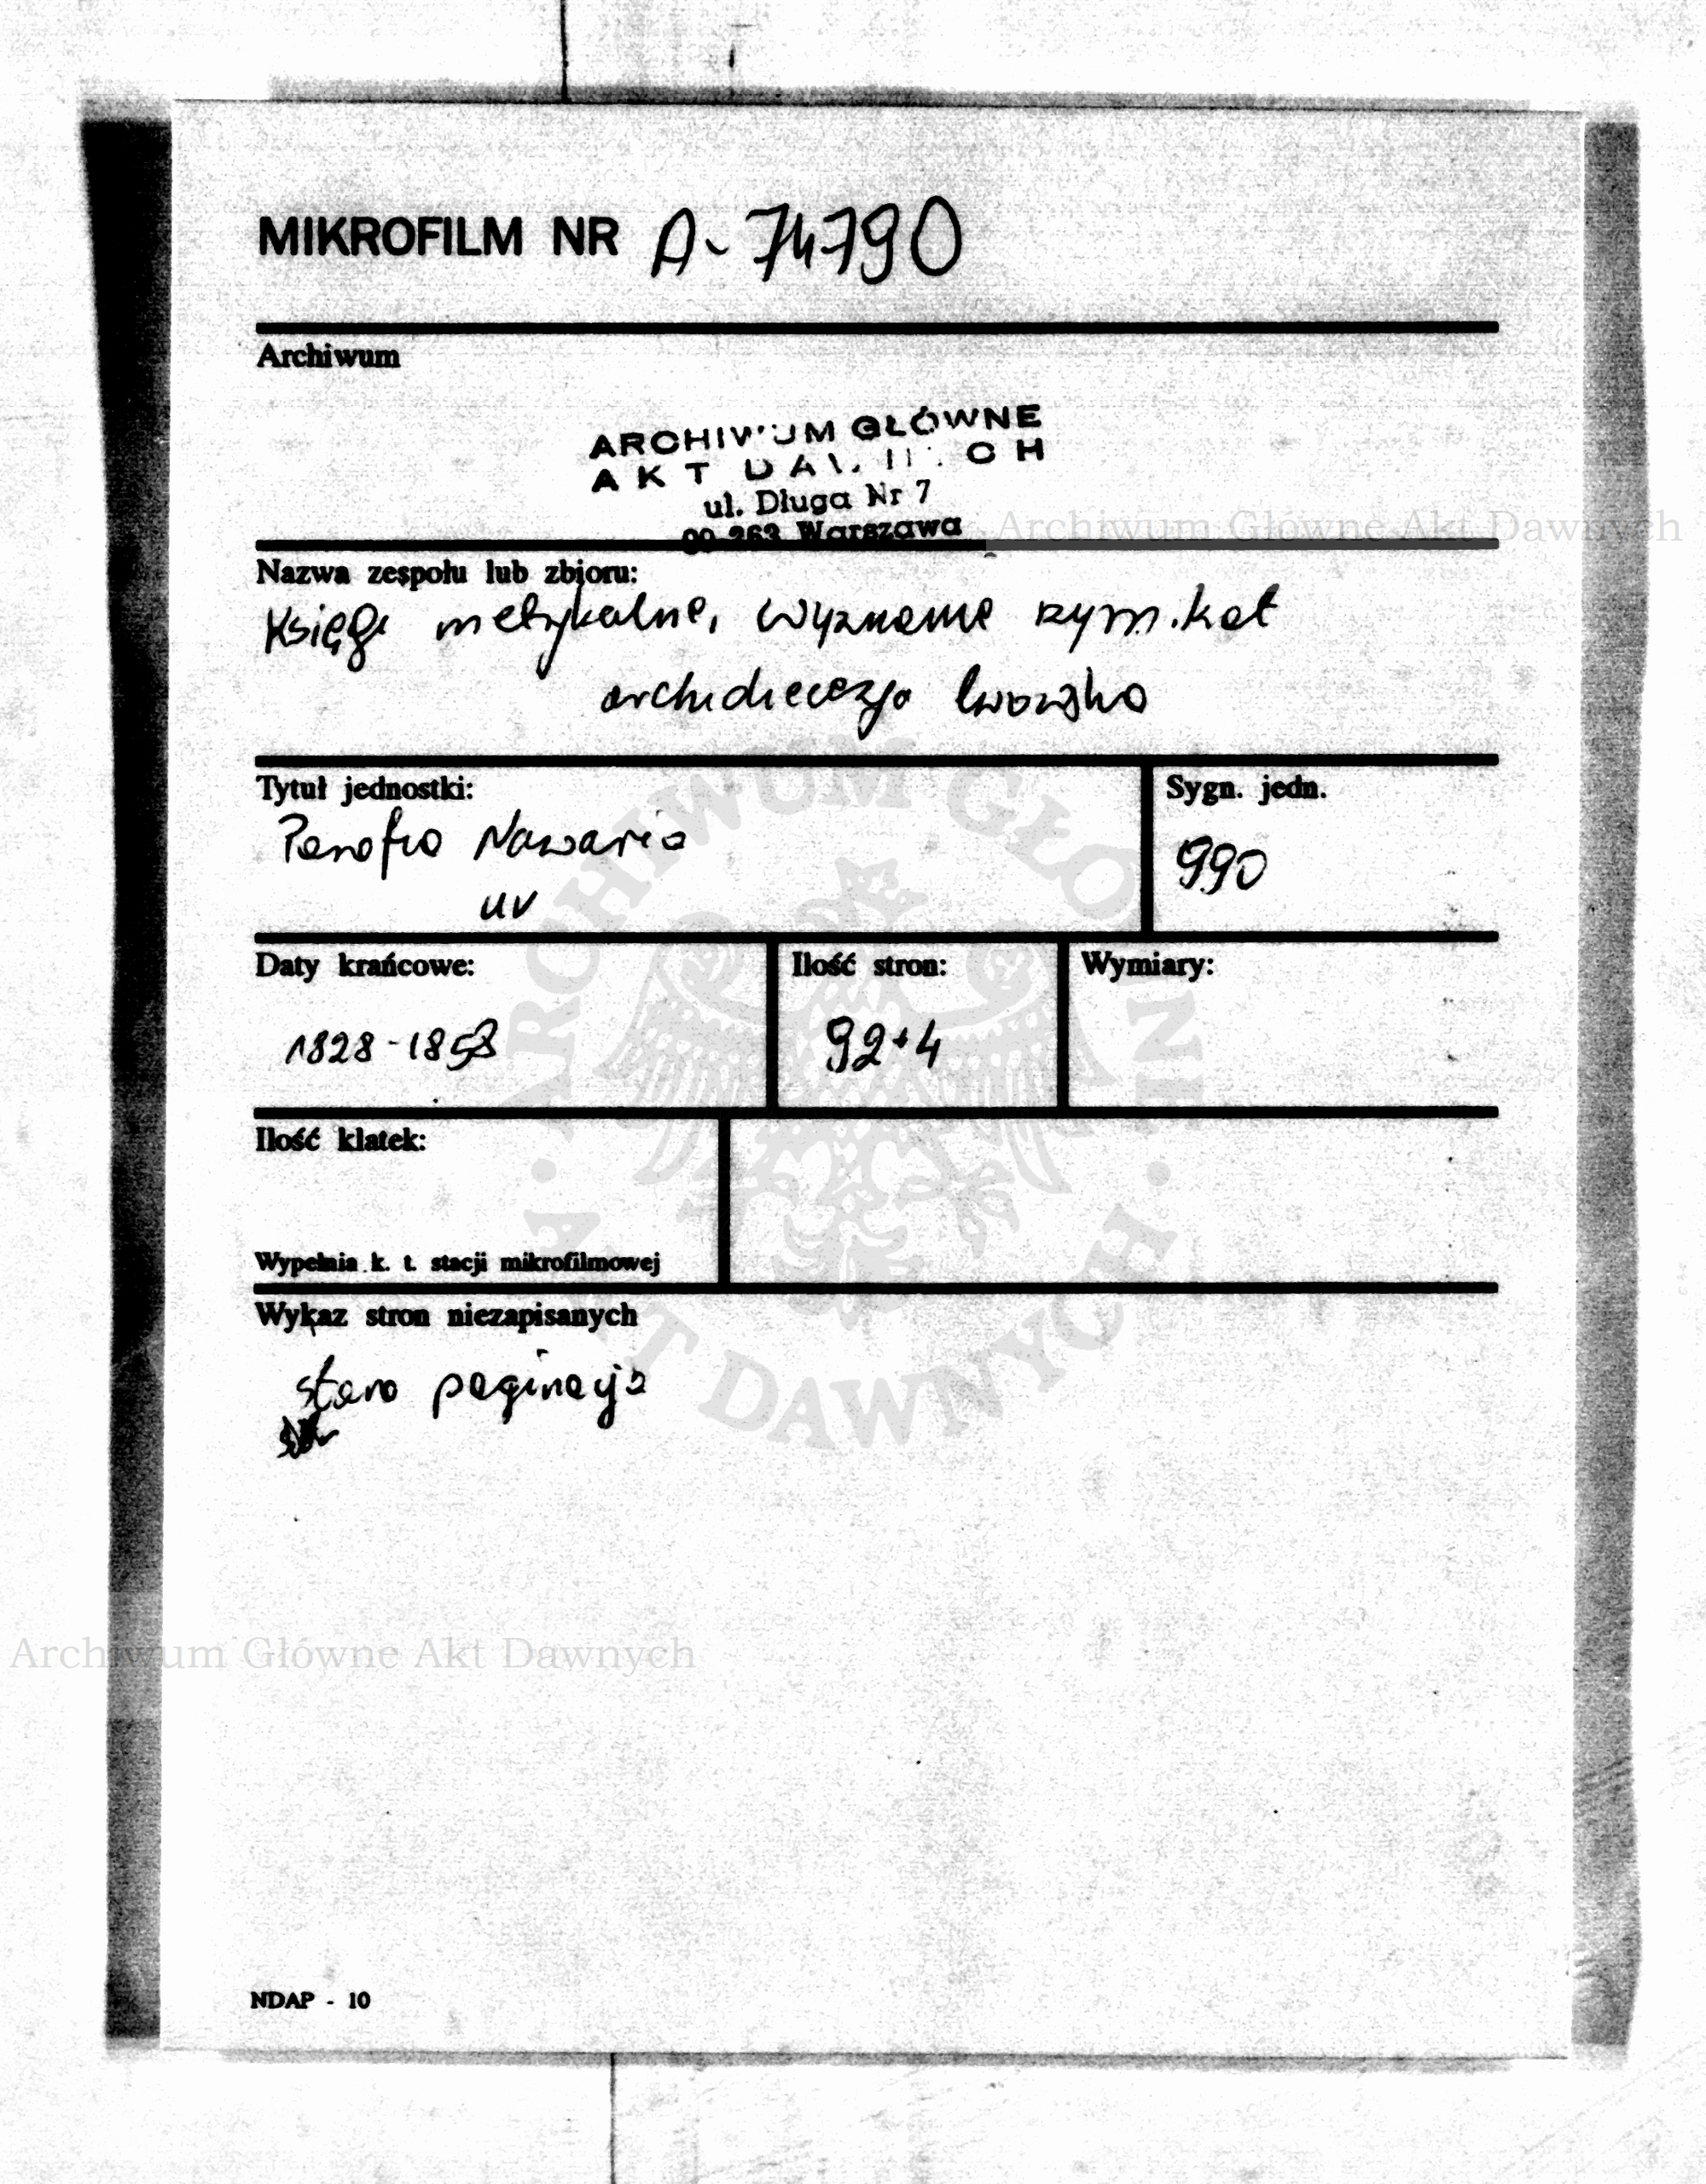 MIKROFILM NR A-74790
Archiwum
ARCHIWUM GŁÓWNE
AKT DAWNYCH
ul. Długa Nr 7
00-263 Warszawa
Archiwum Główne Akt Dawnych
Nazwa zespołu lub zbioru:
Księgi metrykalne, wyznanie rzym.kat
archidiecezja lwowska
Tytuł jednostki:
Sygn. jedn.
Parafia Nawaria
990
uv
Daty krańcowe:
Ilość stron:
Wymiary:
1828-1858
92+4
Ilość klatek:
Wypełnia k. t. stacji mikrofilmowej
Wykaz stron niezapisanych
stara paginacja
ARCHIWUM GŁÓWNE
AKT DAWNYCH
Archiwum Główne Akt Dawnych
NDAP - 10